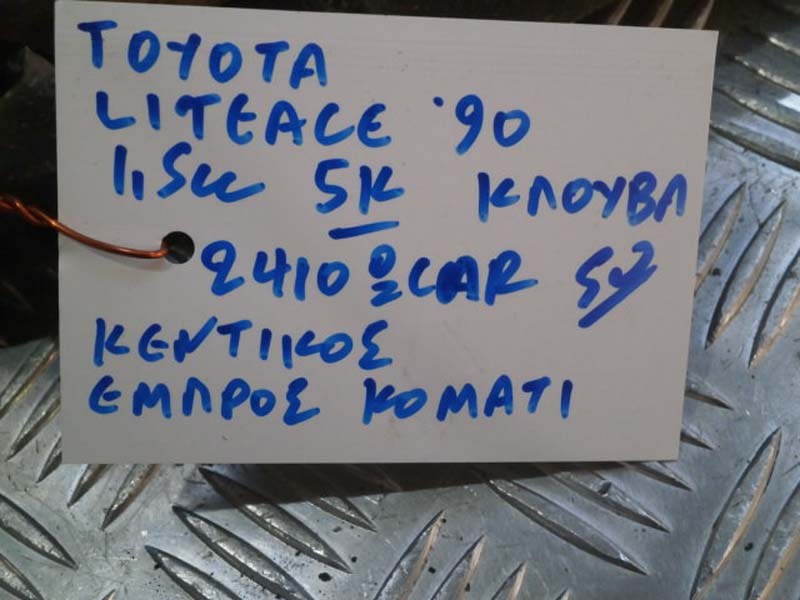 TOYOTA
LITEACE '90
1,5cc 5K ΚΛΟΥΒΑ
2410
CAR
ΚΕΝΤΙΚΟΣ
ΕΜΠΡΟΣ ΚΟΜΑΤΙ